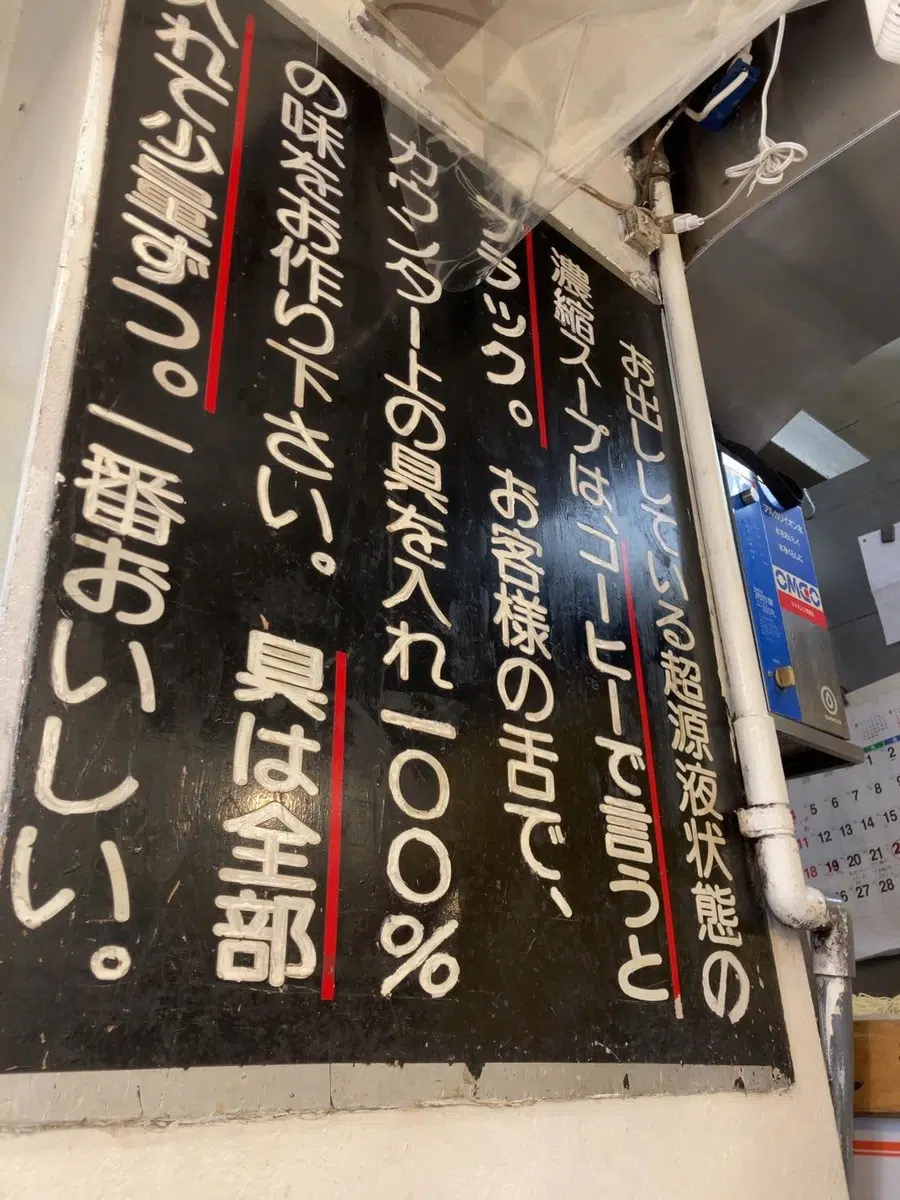 お出ししている超源液状態の
濃縮スープはコーヒーで言うと
ラック。お客様の舌で、
カウンター上の具を入れ一〇〇%
の味をお作り下さい。具は全部
入れて少量ずつ。一番おいしい。
OMCO
1 2
5 6 7 8
11 12 13 14 15
18 19 20 21
26 27 28